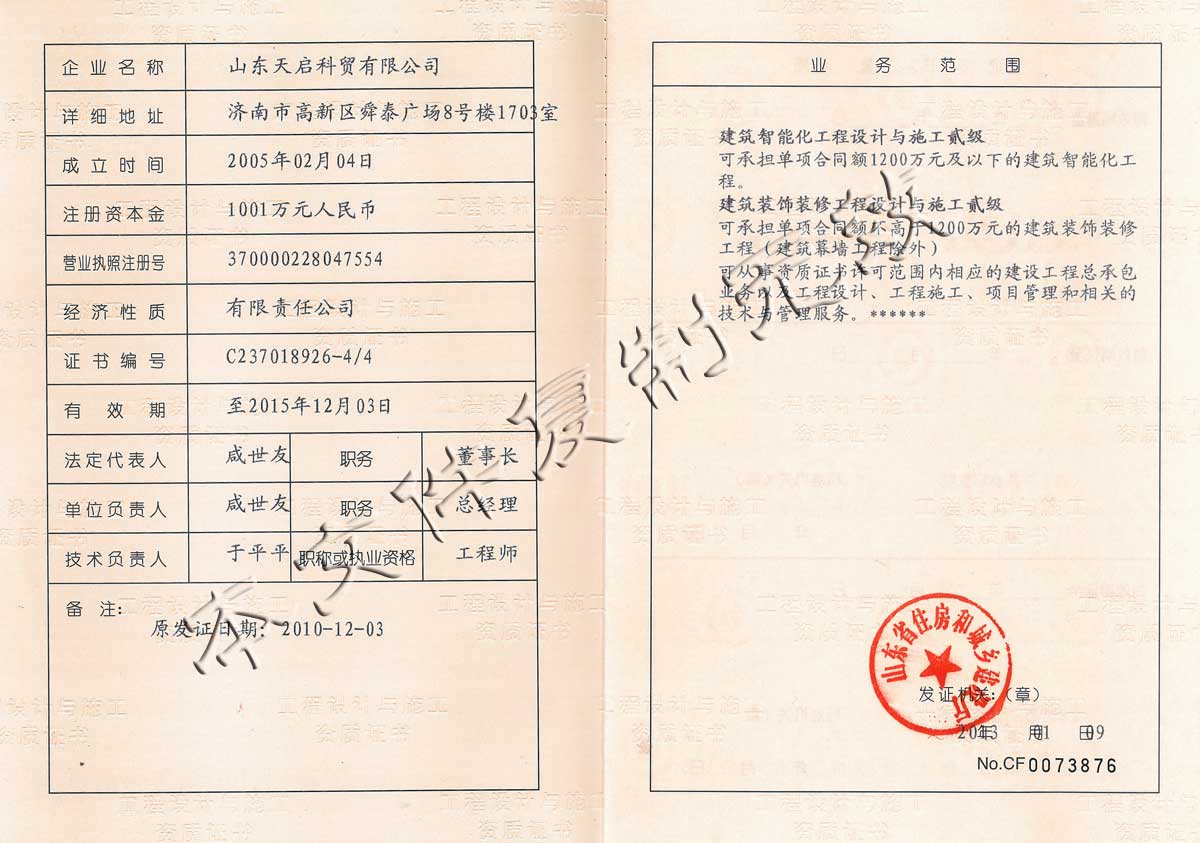 企业名称 山东天启科贸有限公司
详细地址 济南市高新区舜泰广场8号楼1703室
成立时间 2005年02月04日
注册资本金 1001万元人民币
营业执照注册号 370000228047554
经济性质 有限责任公司
证书编号 C237018926-4/4
有效期 至2015年12月03日
法定代表人 咸世友 职务 董事长
单位负责人 咸世友 职务 总经理
技术负责人 于平平 职称或执业资格 工程师
备注:
原发证日期: 2010-12-03
本文件复制无效
业务范围
建筑智能化工程设计与施工贰级
可承担单项合同额1200万元及以下的建筑智能化工
程。
建筑装饰装修工程设计与施工贰级
可承担单项合同额不高于1200万元的建筑装饰装修
工程(建筑幕墙工程除外)
可从事资质证书许可范围内相应的建设工程总承包
业务以及工程设计、工程施工、项目管理和相关的
技术与管理服务。******
山东省住房和城乡建设厅
发证机关:(章)
2013年 01月 09日
No.CF0073876
工程设计与施工
资质证书